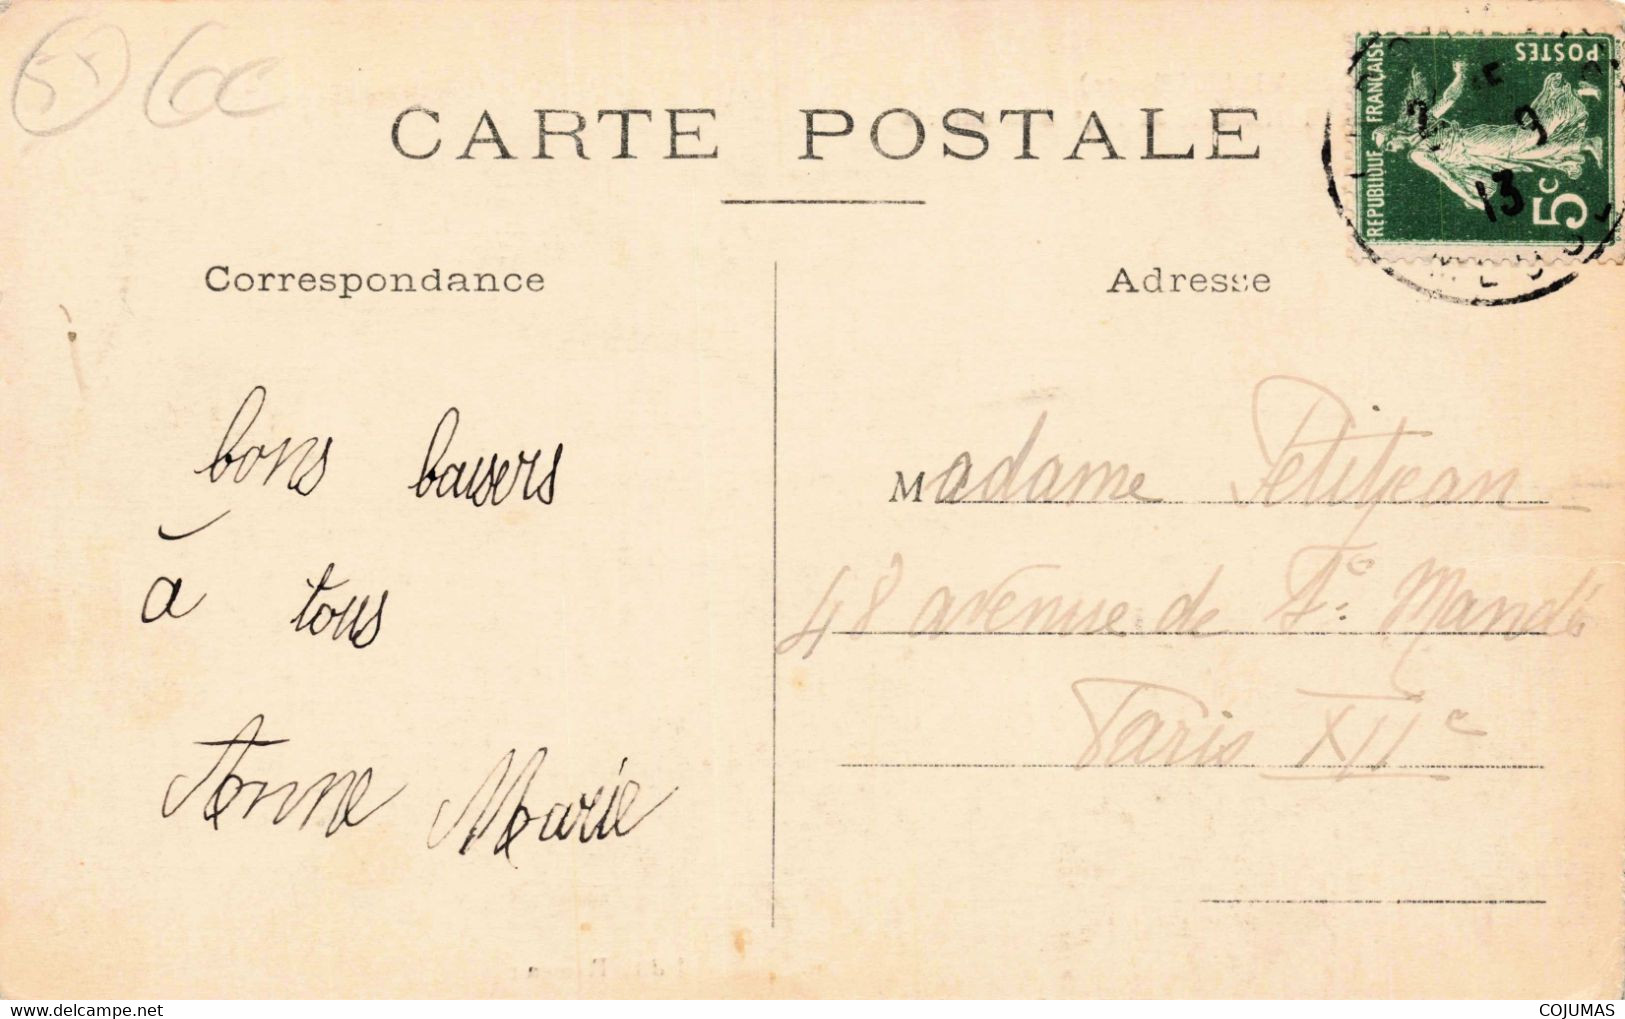 55 6c
CARTE POSTALE
REPUBLIQUE FRANÇAISE
POSTES
5c
9
13
Correspondance
Adresse
bons baisers
à tous
Anne Marie
Madame Petitjean
48 avenue de St Mandé
Paris XIIe
COJUMAS